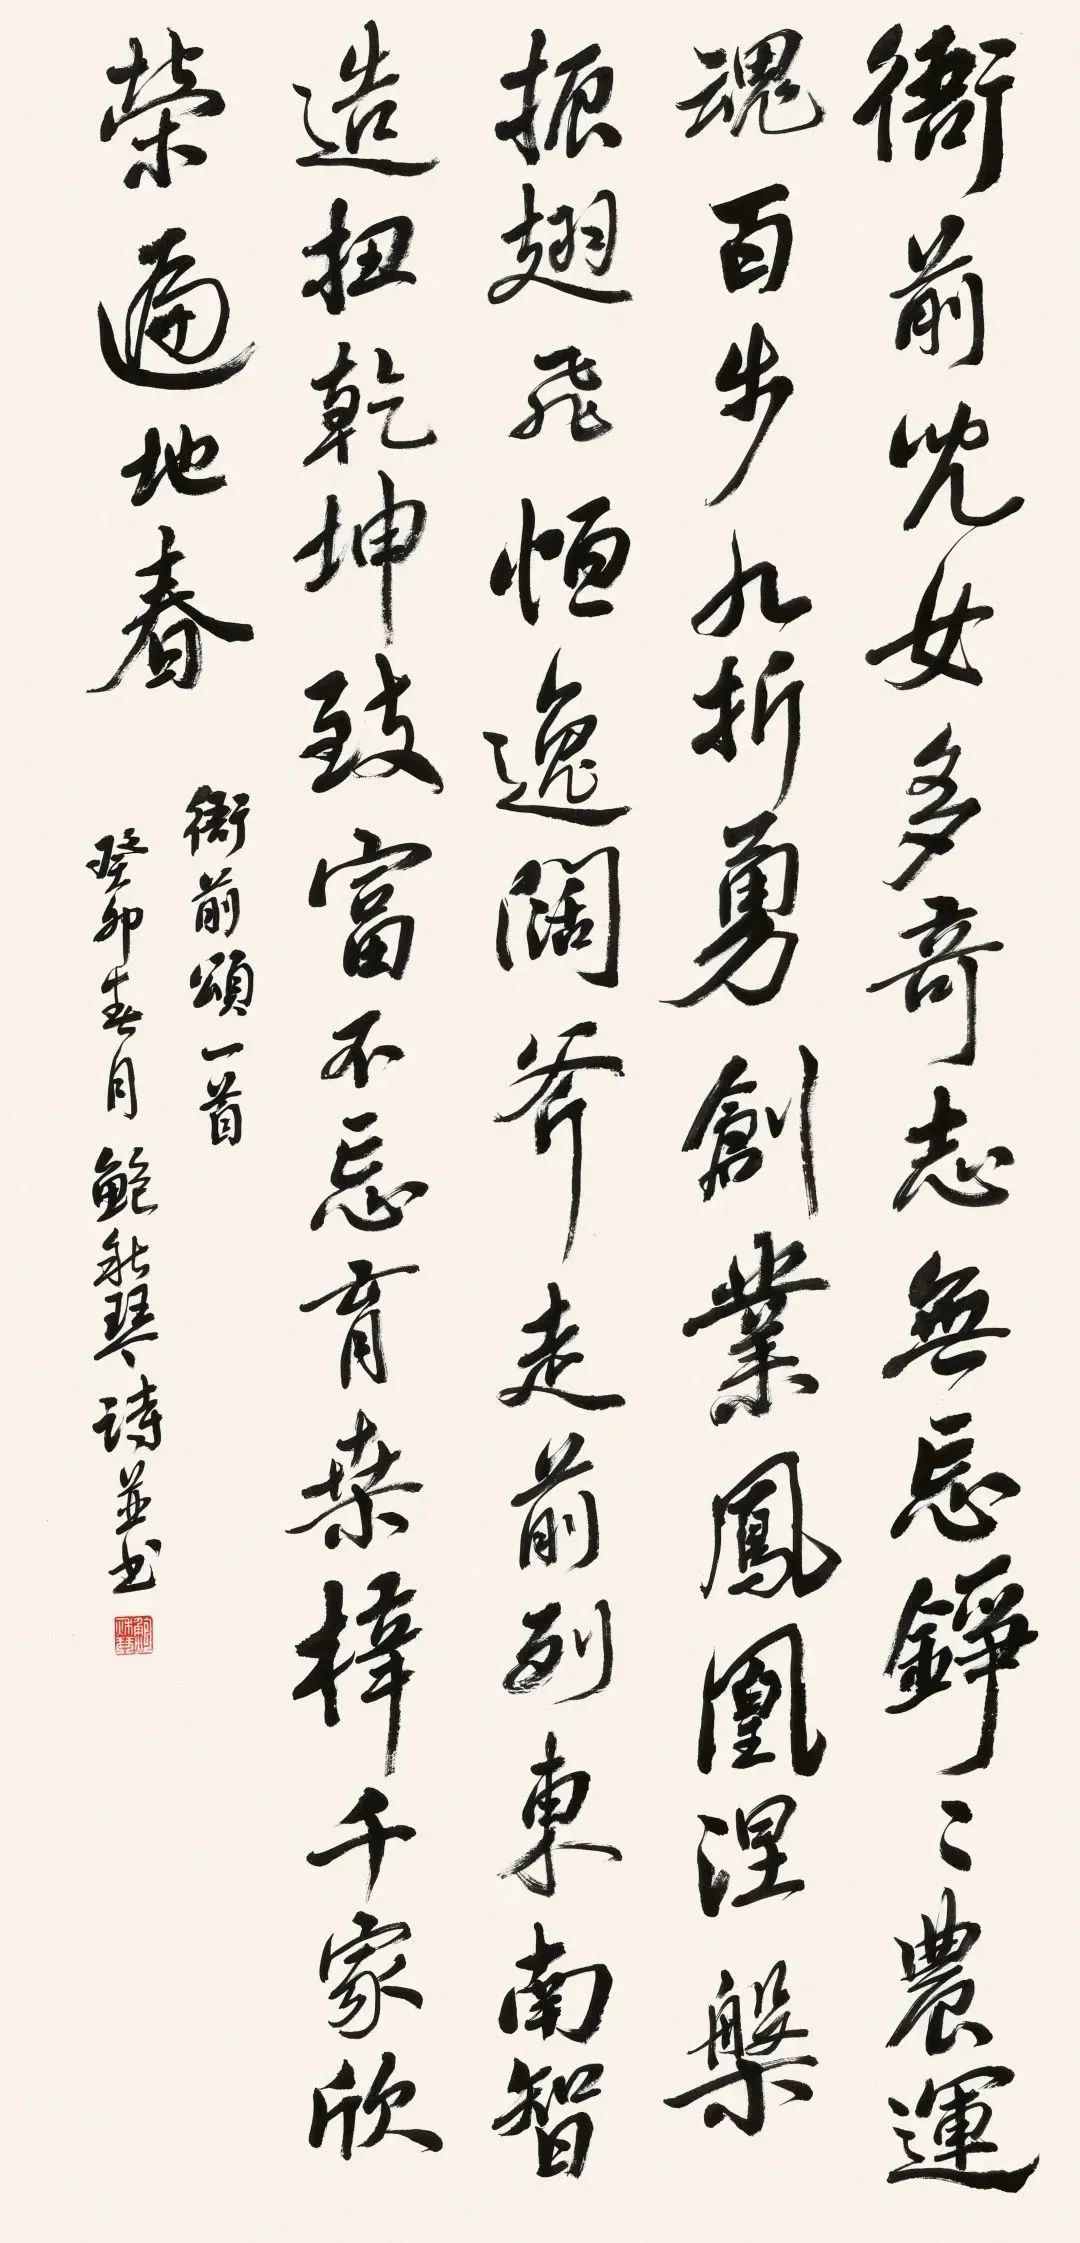 衙前兒女多奇志無忘錚〻農運
魂百步九折勇創業鳳凰涅槃
振翅飛恒逸闊斧走前列東南智
造扭乾坤致富不忘育桒梓千家欣
榮遍地春
衙前頌一首
癸卯春月鮑秋琴詩並书